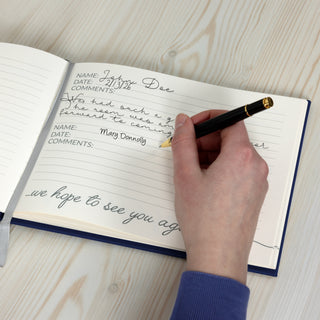 NAME: Johnn Doe
DATE: 21/3/26
COMMENTS:
We had such a g
The room was a
forward to coming
NAME: Mary Donnelly
DATE:
COMMENTS:
...we hope to see you aga